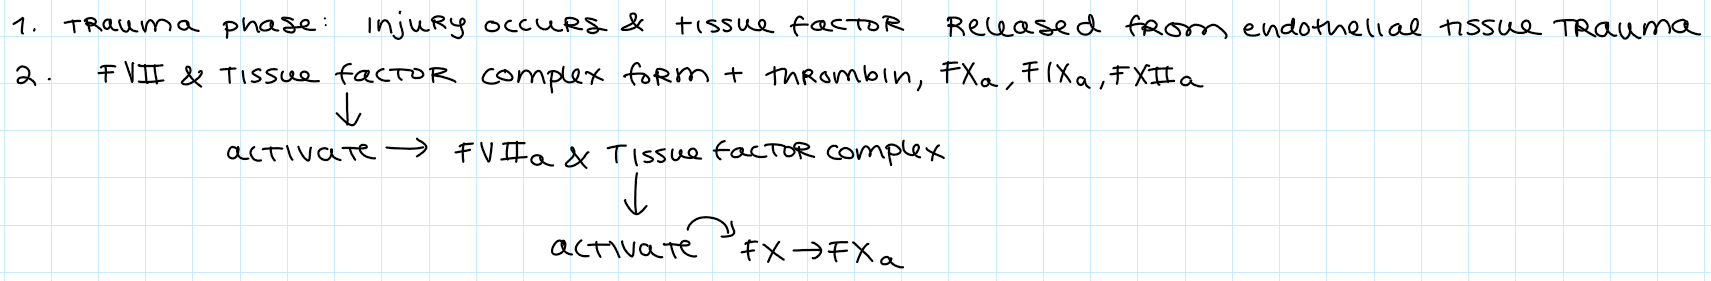 1. Trauma phase: Injury occurs & tissue factor Released from endothelial tissue Trauma
2. FVII & Tissue factor complex form + thrombin, FXa, FIXa, FXIIa
↓
activate → FVIIa & Tissue factor complex
↓
activate FX → FXa